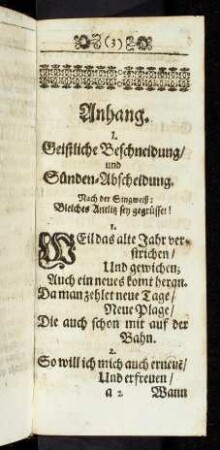 (3)
Anhang.
I.
Geistliche Beschneidung/
und
Sünden-Abscheidung.
Nach der Singweiß:
Bleiches Antlitz sey gegrüsset!
1.
WEil das alte Jahr ver-
strichen/
Und gewichen;
Auch ein neues komt heran.
Da man zehlet neue Tage/
Neue Plage/
Die auch schon mit auf der
Bahn.
2.
So will ich mich auch erneuē/
Und erfreuen/
a 2 Wann